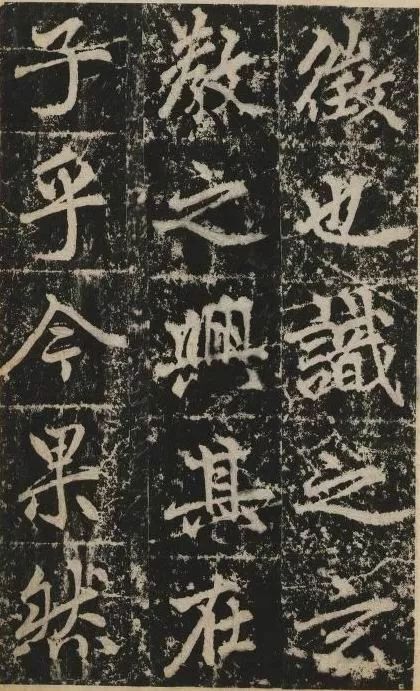 徵也識之云
教之興其在
子乎今果然